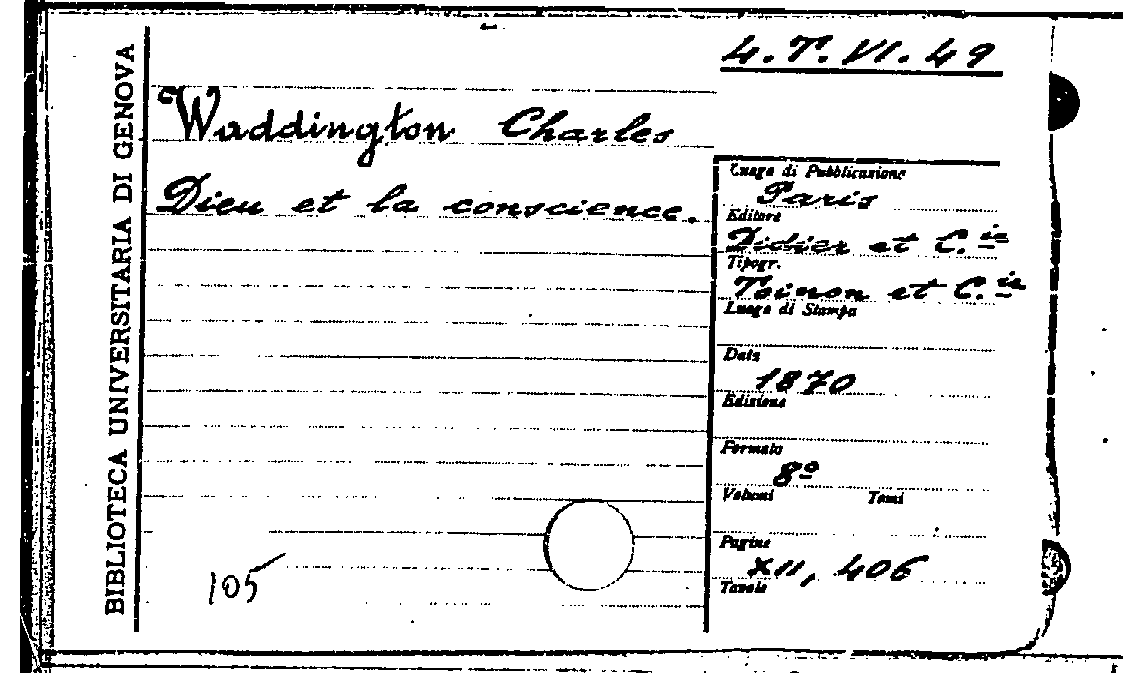 BIBLIOTECA UNIVERSITARIA DI GENOVA
4. T. VI. 49
Waddington Charles
Dieu et la conscience.
Luogo di Pubblicazione
Paris
Editore
Didier et C.ie
Tipogr.
Toinon et C.ie
Luogo di Stampa
Data
1870
Edizione
Formato
8º
Volumi Tomi
Pagine
XII, 406
Tavole
105